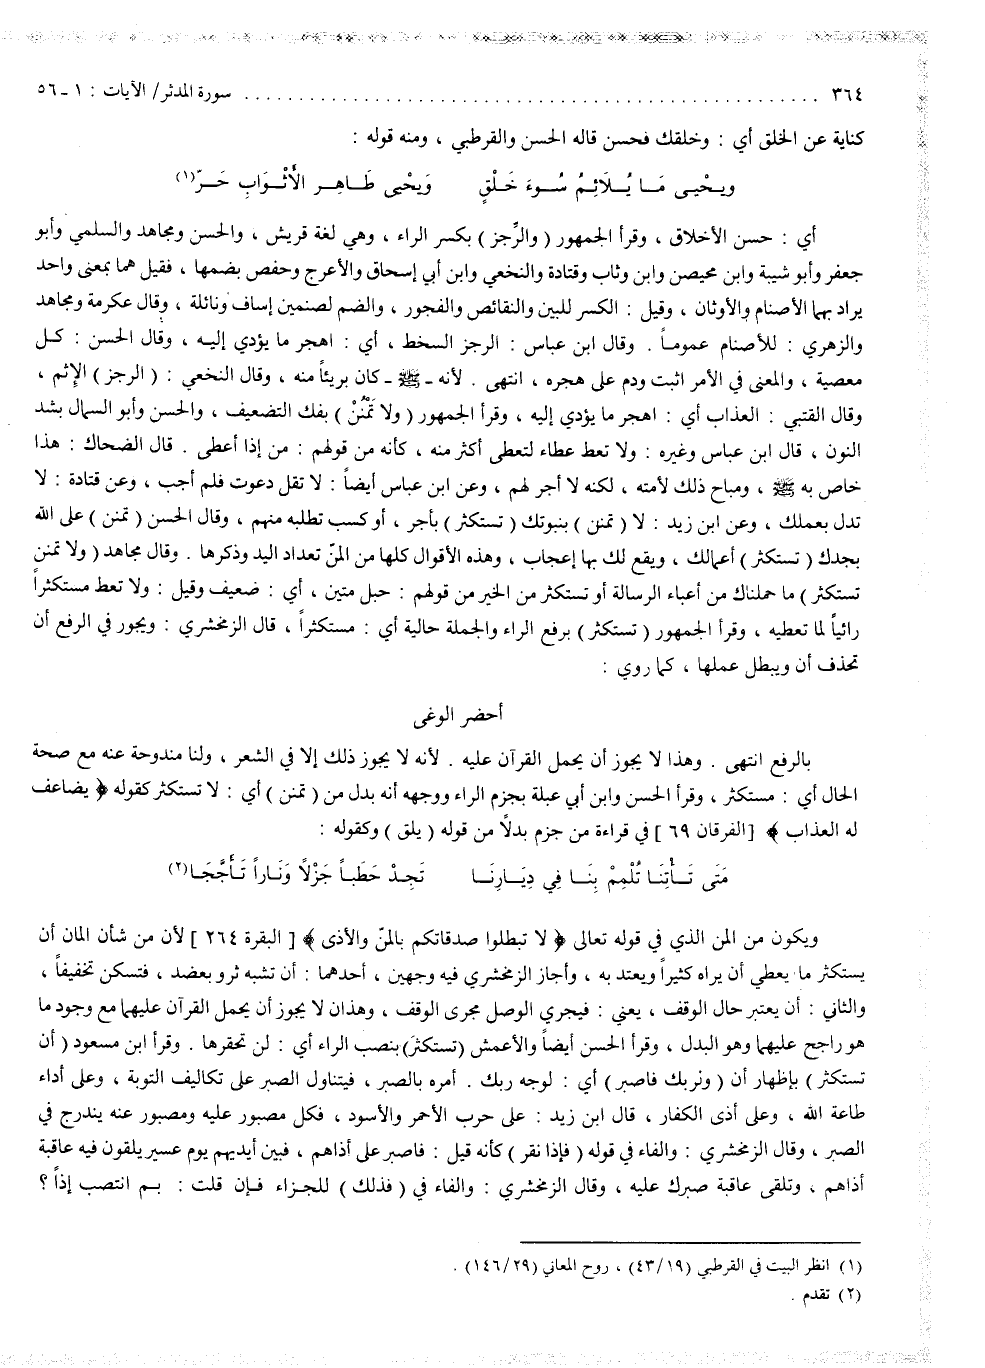 ٣٦٤ . . . . . . . . . . . . . . . . . . . . . . . . . . . . . . . . . . . . . . . . . . . . سورة المدثر/ الآيات : ١ ـ ٥٦
كناية عن الخلق أي : وخلقك فحسن قاله الحسن والقرطبي ، ومنه قوله :
وَيَحْيى مَا يُلَائِمُ سُوءَ خَلْقٍ وَيَحْيى طَاهِر الأَثْوَابِ حَرّ(١)
أي : حسن الأخلاق ، وقرأ الجمهور ( والرِّجز ) بكسر الراء ، وهي لغة قريش ، والحسن ومجاهد والسلمي وأبو
جعفر وأبو شيبة وابن محيصن وابن وثاب وقتادة والنخعي وابن أبي إسحاق والأعرج وحفص بضمها ، فقيل هما بمعنى واحد
يراد بهما الأصنام والأوثان ، وقيل : الكسر للبين والنقائص والفجور ، والضم لصنمين إساف ونائلة ، وقال عكرمة ومجاهد
والزهري : للأصنام عموماً . وقال ابن عباس : الرجز السخط ، أي : اهجر ما يؤدي إليه ، وقال الحسن : كل
معصية ، والمعنى في الأمر اثبت ودم على هجره ، انتهى . لأنه ـ ﷺ ـ كان بريئاً منه ، وقال النخعي : ( الرجز ) الإثم ،
وقال القتبي : العذاب أي : اهجر ما يؤدي إليه ، وقرأ الجمهور ( ولا تَمْنُنْ ) بفك التضعيف ، والحسن وأبو السمال بشد
النون ، قال ابن عباس وغيره : ولا تعط عطاء لتعطى أكثر منه ، كأنه من قولهم : من إذا أعطى . قال الضحاك : هذا
خاص به ﷺ ، ومباح ذلك لأمته ، لكنه لا أجر لهم ، وعن ابن عباس أيضاً : لا تقل دعوت فلم أجب ، وعن قتادة : لا
تدل بعملك ، وعن ابن زيد : لا ( تمنن ) بنبوتك ( تستكثر ) بأجر ، أو كسب تطلبه منهم ، وقال الحسن ( تمنن ) على الله
بجدك ( تستكثر ) أعمالك ، ويقع لك بها إعجاب ، وهذه الأقوال كلها من المنّ تعداد اليد وذكرها . وقال مجاهد ( ولا تمنن
تستكثر ) ما حملناك من أعباء الرسالة أو تستكثر من الخير من قولهم : حبل متين ، أي : ضعيف وقيل : ولا تعط مستكثراً
رائياً لما تعطيه ، وقرأ الجمهور ( تستكثر ) برفع الراء والجملة حالية أي : مستكثراً ، قال الزمخشري : ويجور في الرفع أن
تحذف أن ويبطل عملها ، كما روي :
أحضر الوغى
بالرفع انتهى . وهذا لا يجوز أن يحمل القرآن عليه . لأنه لا يجوز ذلك إلا في الشعر ، ولنا مندوحة عنه مع صحة
الحال أي : مستكثر ، وقرأ الحسن وابن أبي عبلة بجزم الراء ووجهه أنه بدل من ( تمنن ) أي : لا تستكثر كقوله ﴿ يضاعف
له العذاب ﴾ [الفرقان ٦٩ ] في قراءة من جزم بدلاً من قوله ( يلق ) وكقوله :
مَتَى تَأْتِنَا تُلْمِمْ بِنَا فِي دِيَارِنَا تَجِدْ حَطَباً جَزْلاً وَنَاراً تَأَجَّجَا(٢)
ويكون من المن الذي في قوله تعالى ﴿ لا تبطلوا صدقاتكم بالمنّ والأذى ﴾ [ البقرة ٢٦٤ ] لأن من شأن المان أن
يستكثر ما يعطي أن يراه كثيراً ويعتد به ، وأجاز الزمخشري فيه وجهين ، أحدهما : أن تشبه ثرو بعضد ، فتسكن تخفيفاً ،
والثاني : أن يعتبر حال الوقف ، يعني : فيجري الوصل مجرى الوقف ، وهذان لا يجوز أن يحمل القرآن عليهما مع وجود ما
هو راجح عليهما وهو البدل ، وقرأ الحسن أيضاً والأعمش (تستكثرَ) بنصب الراء أي : لن تحقرها . وقرأ ابن مسعود ( أن
تستكثر ) بإظهار أن ( ولربك فاصبر ) أي : لوجه ربك . أمره بالصبر ، فيتناول الصبر على تكاليف التوبة ، وعلى أداء
طاعة الله ، وعلى أذى الكفار ، قال ابن زيد : على حرب الأحمر والأسود ، فكل مصبور عليه ومصبور عنه يندرج في
الصبر ، وقال الزمخشري : والفاء في قوله ( فإذا نقر ) كأنه قيل : فاصبر على أذاهم ، فبين أيديهم يوم عسير يلقون فيه عاقبة
أذاهم ، وتلقى عاقبة صبرك عليه ، وقال الزمخشري : والفاء في ( فذلك ) للجزاء فإن قلت : بم انتصب إذاً ؟
(١) انظر البيت في القرطبي (١٩/ ٤٣) ، روح المعاني (٢٩/ ١٤٦) .
(٢) تقدم .